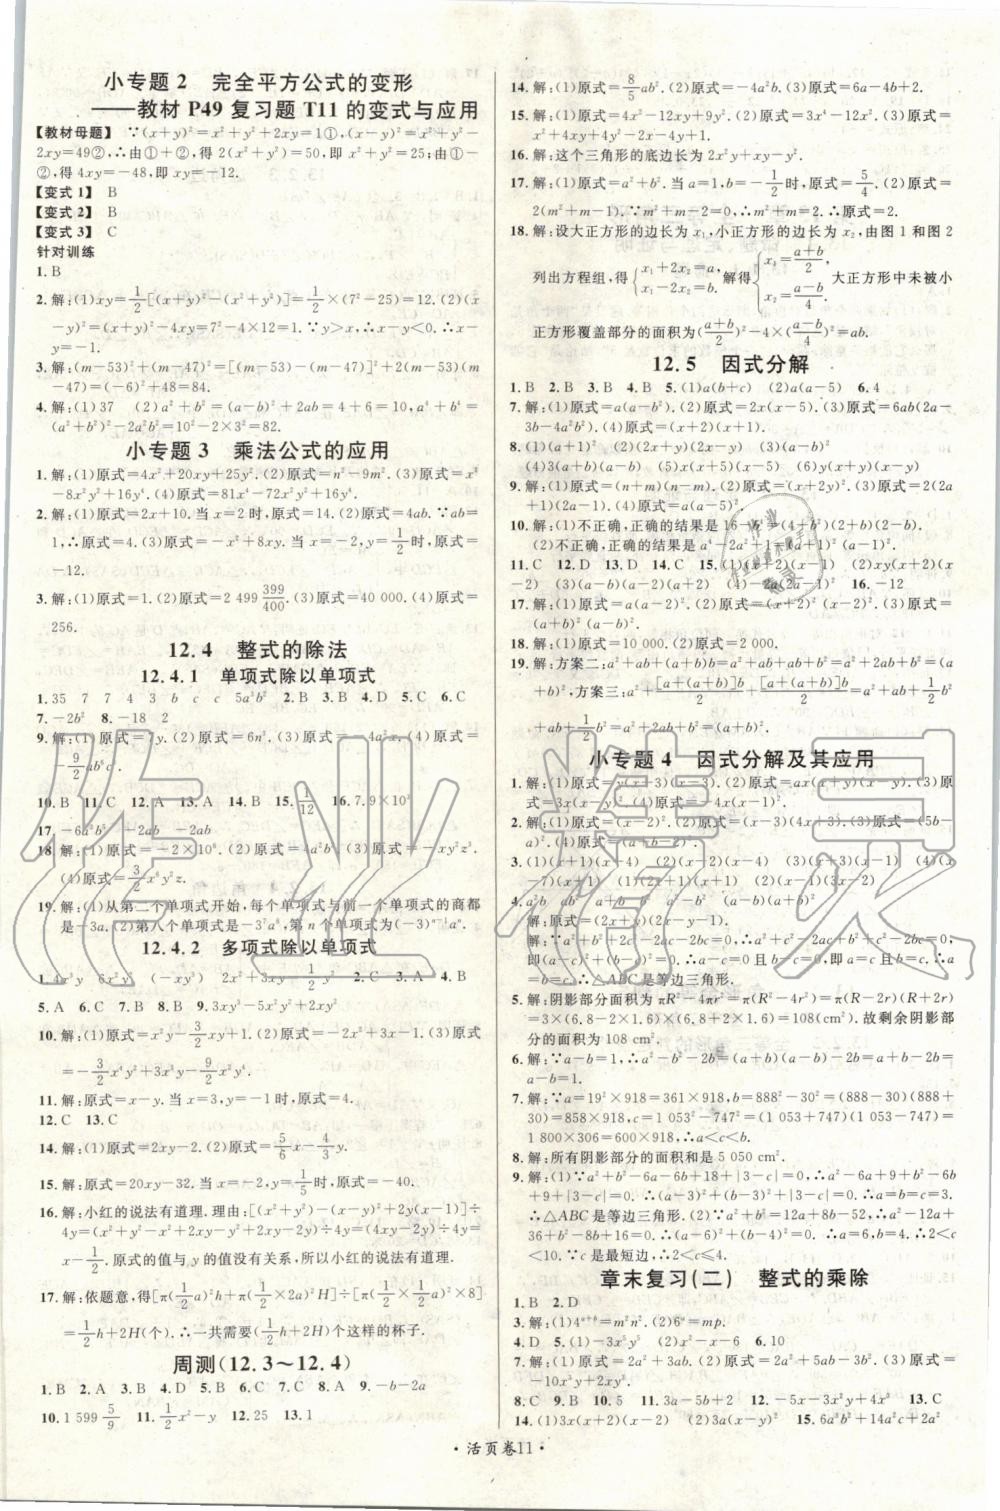 小专题2 完全平方公式的变形
——教材 P49 复习题 T11 的变式与应用
【教材母题】 ∵(x+y)²=x²+y²+2xy=1①,(x-y)²=x²+y²-
2xy=49②,∴由①+②,得 2(x²+y²)=50,即 x²+y²=25;由①-
②,得 4xy=-48,即 xy=-12.
【变式 1】 B
【变式 2】 B
【变式 3】 C
针对训练
1. B
2. 解:(1)xy=1/2[(x+y)²-(x²+y²)]=1/2×(7²-25)=12.(2)(x-
y)²=(x+y)²-4xy=7²-4×12=1.∵y>x,∴x-y<0.∴x-
y=-1.
3. 解:(m-53)²+(m-47)²=[(m-53)-(m-47)]²+2(m-53)(m
-47)=(-6)²+48=84.
4. 解:(1)37 (2)a²+b²=(a-b)²+2ab=4+6=10,a⁴+b⁴=
(a²+b²)²-2a²b²=10²-2×3²=82.
小专题3 乘法公式的应用
1. 解:(1)原式=4x²+20xy+25y².(2)原式=n²-9m².(3)原式=x⁴
-8x²y²+16y⁴.(4)原式=81x⁴-72x²y²+16y⁴.
2. 解:(1)原式=2x+10.当 x=2时,原式=14.(2)原式=4ab.∵ab=
1,∴原式=4.(3)原式=-x²+8xy.当 x=-2,y=1/2时,原式=
-12.
3. 解:(1)原式=1.(2)原式=2 499 399/400.(3)原式=40 000.(4)原式=
256.
12.4 整式的除法
12.4.1 单项式除以单项式
1. 35 7 7 4 3 b c c 5a³b² 2. B 3. B 4. D 5. C 6. C
7. -2b² 8. -18 2
9. 解:(1)原式=7y.(2)原式=6n³.(3)原式=-4a²x.(4)原式=
-9/2ab⁶c.
10. B 11. C 12. A 13. A 14. B 15. 1/12 16. 7.9×10³
17. -6a³b³ -2ab -2ab
18. 解:(1)原式=-2×10⁶.(2)原式=4a²b².(3)原式=-xy²z³.
(4)原式=3/2x⁶y²z.
19. 解:(1)从第二个单项式开始,每个单项式与前一个单项式的商都
是-3a.(2)第八个单项式是-3⁷a⁸.第 n 个单项式为(-3)ⁿ⁻¹aⁿ.
12.4.2 多项式除以单项式
1. 4x³y 6x²y² (-xy³) 2x²+3xy-1/2y² 2. C 3. A 4. B
5. A 6. C 7. B 8. B 9. 3xy³-5x²y²+2xy²
10. 解:(1)原式=x²y-3/2xy+1.(2)原式=-2x²+3x-1.(3)原式=
-3/2x⁴y²+x³y-3x²y.
11. 解:原式=x-y.当 x=3,y=-1时,原式=4.
12. C 13. C
14. 解:(1)原式=-2xy.(2)原式=5/6x-4/3y.
15. 解:原式=20xy-32.当 x=2,y=-1/5时,原式=-40.
16. 解:小红的说法有道理.理由:[(x²+y²)-(x-y)²+2y(x-1)]÷
4y=(x²+y²-x²+2xy-y²+2xy-2y)÷4y=(4xy-2y)÷4y=
x-1/2.原式的值与y的值没有关系,所以小红的说法有道理.
17. 解:依题意,得[π(1/2a)²h+π(1/2×2a)²H]÷[π(1/2×1/2a)²×8]
=1/2h+2H(个).∴一共需要(1/2h+2H)个这样的杯子.
周测(12.3～12.4)
1. B 2. A 3. D 4. C 5. B 6. C 7. B 8. A 9. -b-2a
10. 1 599 5/9 11. 1/2x²-y 12. 25 13. 1
14. 解:(1)原式=8/5ab².(2)原式=-4a²b.(3)原式=6a-4b+2.
15. 解:(1)原式=4x²-12xy+9y².(2)原式=3x⁴-12x².(3)原式=
x²+4xy+4y²-2x-4y+1.
16. 解:这个三角形的底边长为 2x²y+xy-y².
17. 解:(1)原式=a²+b².当 a=1,b=-1/2时,原式=5/4.(2)原式=
2(m²+m-1).∵m²+m-2=0,∴m²+m=2.∴原式=2.
18. 解:设大正方形的边长为 x₁,小正方形的边长为 x₂,由图 1 和图 2
列出方程组,得{x₁+2x₂=a, x₁-2x₂=b.解得{x₁=(a+b)/2, x₂=(a-b)/4.大正方形中未被小
正方形覆盖部分的面积为((a+b)/2)²-4×((a-b)/4)²=ab.
12.5 因式分解
1. B 2. B 3. B 4. B 5. (1)a(b+c) (2)a(a-5) 6. 4
7. 解:(1)原式=a(a-b²).(2)原式=2x(x-5).(3)原式=6ab(2a-
3b-4a²b²).(4)原式=(x+2)(x+1).
8. (1)(a+1)² (2)(2x+y)(2x-y) (3)(a-b)²
(4)3(a+b)(a-b) (5)x(x+5)(x-5) (6)y(x+y)(x-y)
9. 解:(1)原式=(n+m)(n-m).(2)原式=(x+2y)².(3)原式=2(2a
+1)(2a-1).(4)原式=a(a-5)².
10. 解:(1)不正确,正确的结果是 16-b⁴=(4+b²)(2+b)(2-b).
(2)不正确,正确的结果是 a⁴-2a²+1=(a+1)²(a-1)².
11. C 12. D 13. D 14. C 15. (1)(x+2)(x-1) (2)xy(x+2)(x
-2) (3)(a-b)(a+2)(a-2) (4)-2a(2a-1)² 16. -12
17. 解:(1)原式=a(a-2)².(2)原式=(x+2)²(x-2)².(3)原式=
(a+b)²(a-b)².
18. 解:(1)原式=10 000.(2)原式=2 000.
19. 解:方案二:a²+ab+(a+b)b=a²+ab+ab+b²=a²+2ab+b²=(a
+b)²,方案三:a²+[a+(a+b)]b/2+[a+(a+b)]b/2=a²+ab+1/2b²
+ab+1/2b²=a²+2ab+b²=(a+b)².
小专题4 因式分解及其应用
1. 解:(1)原式=y(x-3)(x-3).(2)原式=ax(x+y)(x-y).(3)原
2. 解:(1)原式=(x-2)².(2)原式=(4x+3)(4x-3).(3)原式=(5b-
3. (1)(x+1)(x+4) (2)(x-2)(x-4) (3)(x+5)(x-3) (4)(x
-7)(x+1) (5)(x+1)(x-12)
解:原式=(2x+y)(2x-y-2).
解:∵a²+b²+2c²-2ac-2bc=0,
即a-c=0,b-c=0.∴a=c,b=c.∴a=
b=c.∴△ABC是等边三角形.
5. 解:阴影部分面积为 πR²-4πr²=π(R²-4r²)=π(R-2r)(R+2r)
=3×(6.8-2×1.6)×(6.8+2×1.6)=108(cm²).故剩余阴影部
分的面积为 108 cm².
6. 解:∵a-b=1,∴a²-b²-2b=(a+b)(a-b)-2b=a+b-2b=
a-b=1.
7. 解:∵a=19²×918=361×918,b=888²-30²=(888-30)(888+
30)=858×918,c=1 053²-747²=(1 053+747)(1 053-747)=
1 800×306=600×918,∴a<c<b.
8. 解:所有阴影部分的面积和是 5 050 cm².
9. 解:(1)∵a²+b²-6a-6b+18+|3-c|=0,∴a²-6a+9+b²-6b
+9+|3-c|=0.∴(a-3)²+(b-3)²+|3-c|=0.∴a=b=c=3.
∴△ABC是等边三角形.(2)∵a²+b²=12a+8b-52,∴a²-12a+
36+b²-8b+16=0.∴(a-6)²+(b-4)²=0.∴a=6,b=4.∴2<c
<10.∵c 是最短边,∴2<c≤4.
章末复习(二) 整式的乘除
1. B 2. D
3. 解:(1)4ᵃ⁺ᵇ=m²n².(2)6ᵃ=mp.
4. D 5. (1)-3x⁵y⁵ (2)x²-x-6 6. 10
7. 解:(1)原式=-2a³b.(2)原式=2a²-5ab-3b².(3)原式=
-10x³y²+2xy³.
8. C 9. B 10. 5 11. 3a-5b+2 12. -5x²y²+4x³ 13. C
14. (1)3x(x+2)(x-2) (2)3a(x-y)² 15. 5a²b²+14a²c+2a²
·活页卷11·
作业精灵